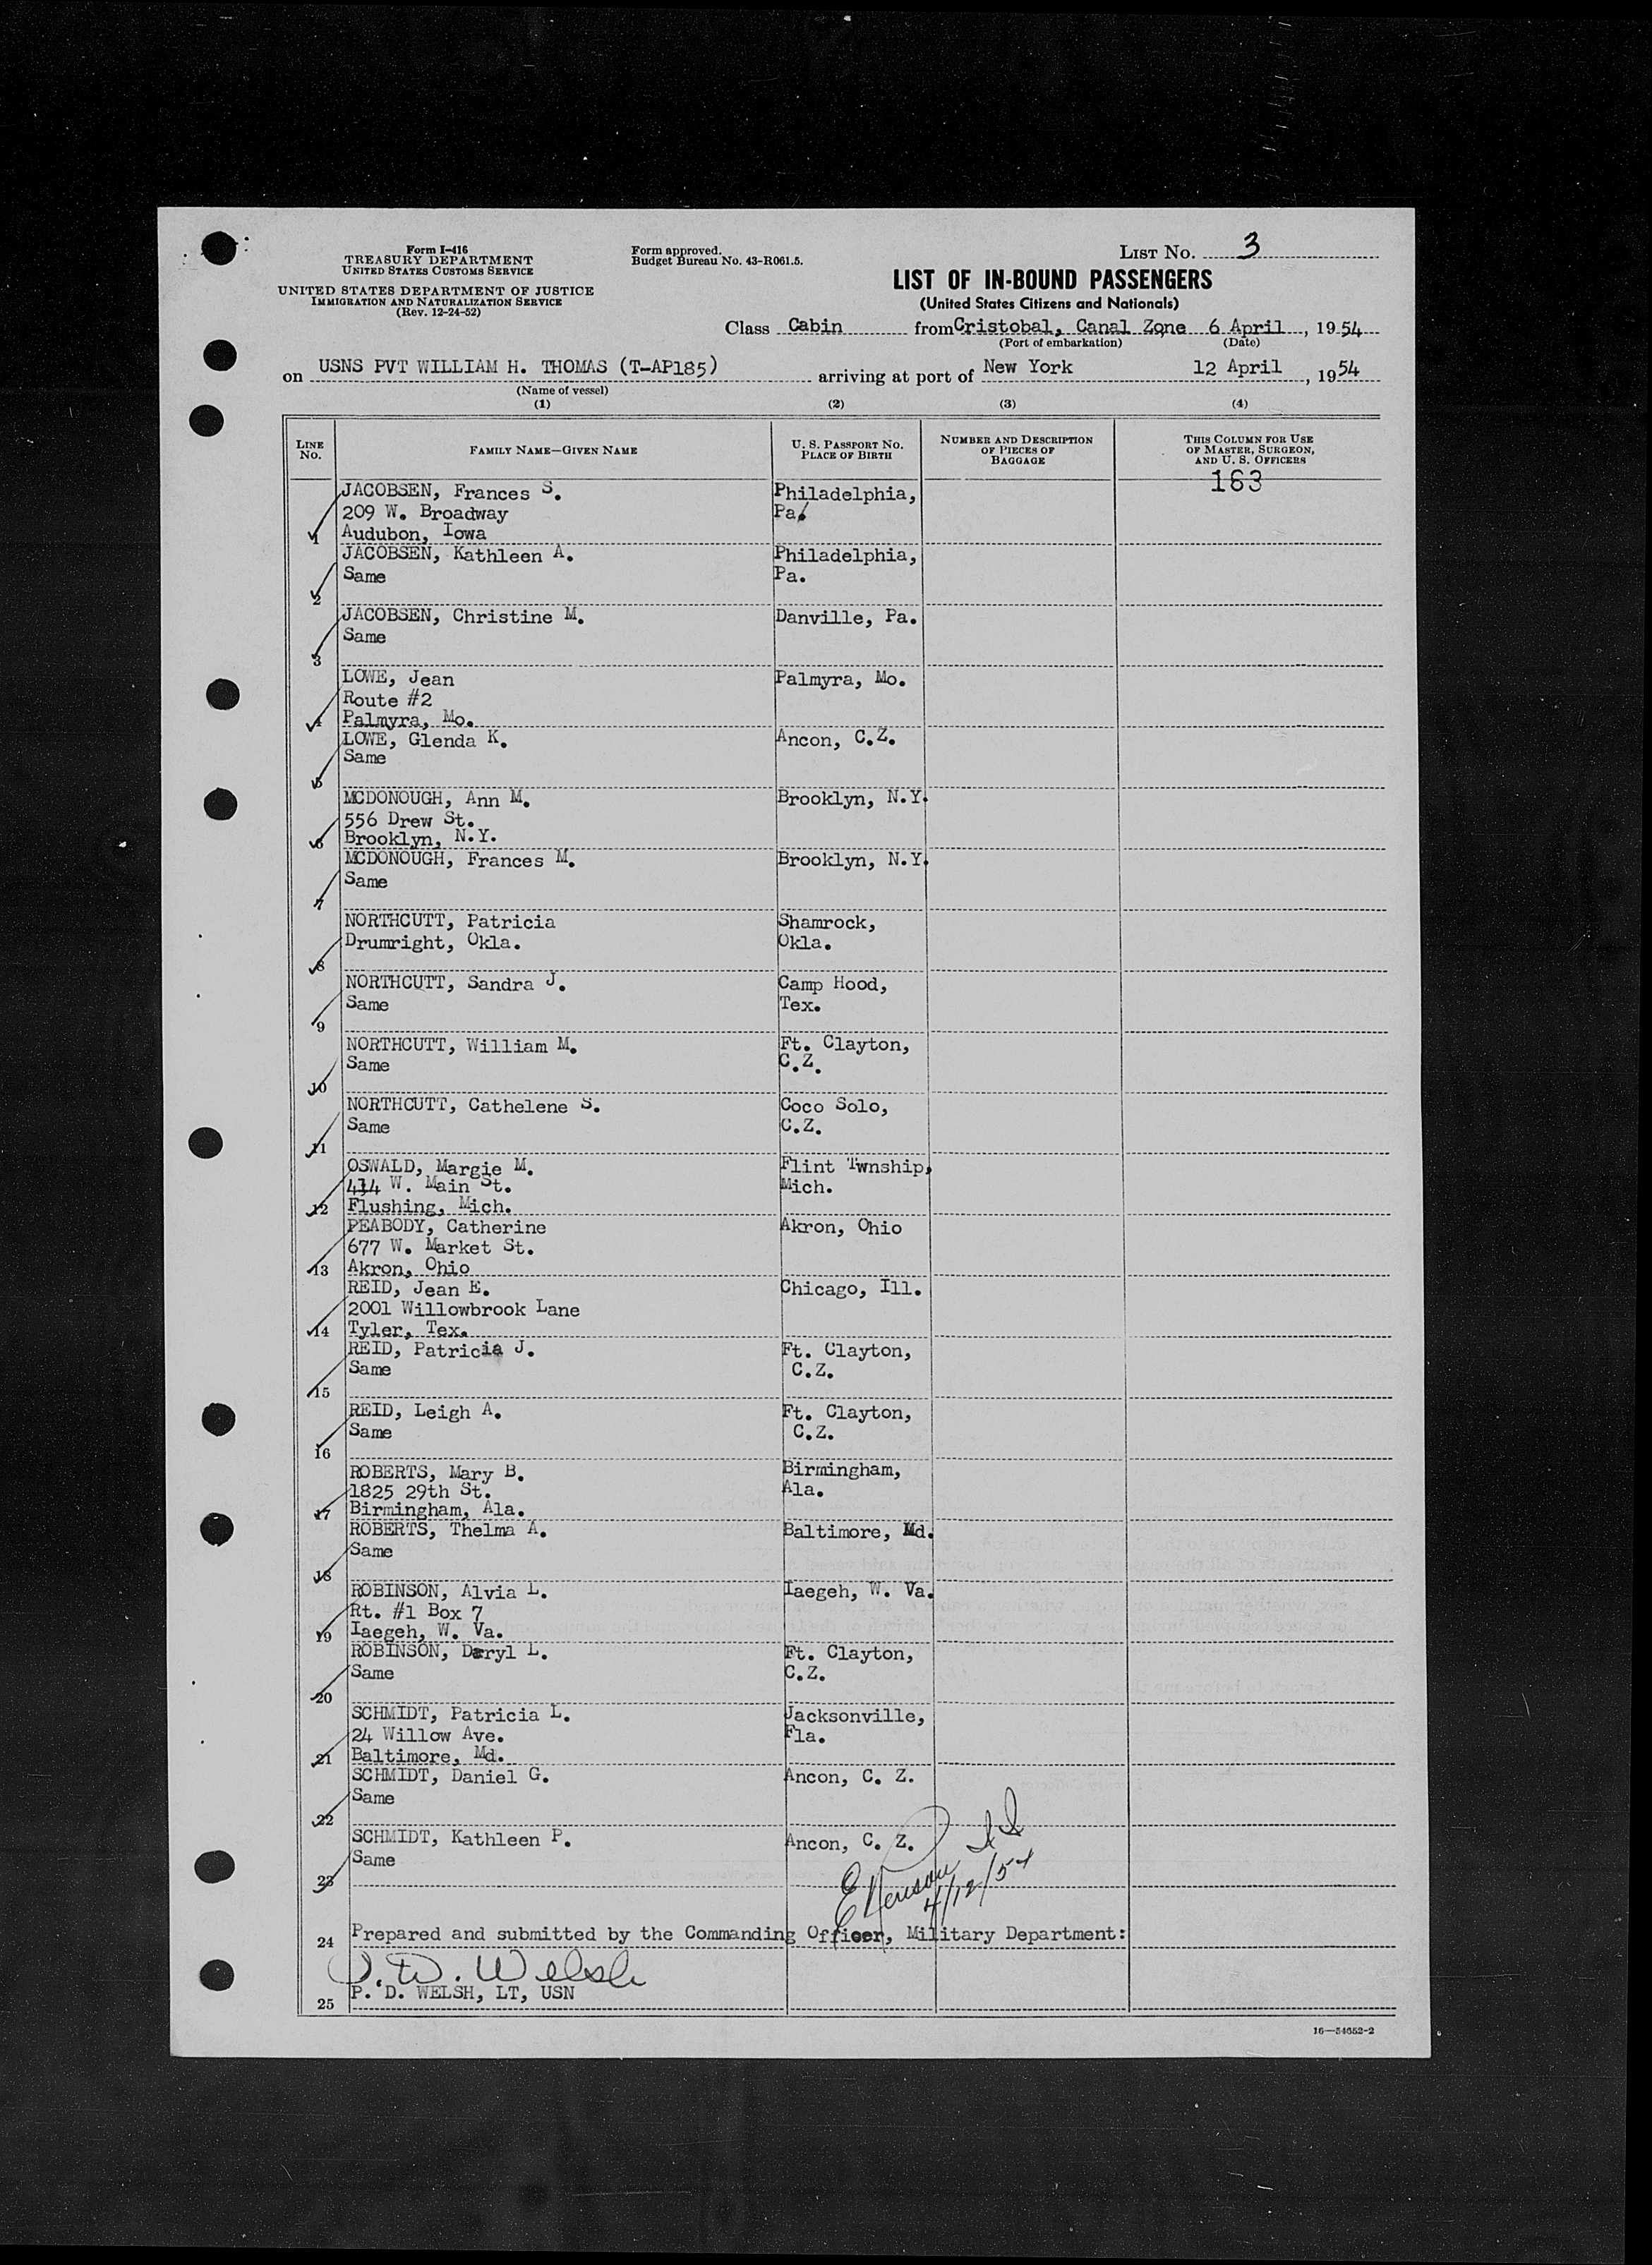 Form I-416
TREASURY DEPARTMENT
UNITED STATES CUSTOMS SERVICE
UNITED STATES DEPARTMENT OF JUSTICE
IMMIGRATION AND NATURALIZATION SERVICE
(Rev. 12-24-52)
Form approved.
Budget Bureau No. 43-R061.5.
LIST NO. 3
LIST OF IN-BOUND PASSENGERS
(United States Citizens and Nationals)
Class Cabin from Cristobal, Canal Zone 6 April, 1954
(Port of embarkation) (Date)
on USNS PVT WILLIAM H. THOMAS (T-AP185) arriving at port of New York 12 April, 1954
(Name of vessel)
(1) (2) (3) (4)
LINE NO. FAMILY NAME—GIVEN NAME U. S. PASSPORT NO. PLACE OF BIRTH NUMBER AND DESCRIPTION OF PIECES OF BAGGAGE THIS COLUMN FOR USE OF MASTER, SURGEON, AND U. S. OFFICERS
163
JACOBSEN, Frances S. Philadelphia,
209 W. Broadway Pa.
1 Audubon, Iowa
JACOBSEN, Kathleen A. Philadelphia,
Same Pa.
2
JACOBSEN, Christine M. Danville, Pa.
Same
3
LOWE, Jean Palmyra, Mo.
Route #2
4 Palmyra, Mo.
LOWE, Glenda K. Ancon, C.Z.
Same
5
MCDONOUGH, Ann M. Brooklyn, N.Y.
556 Drew St.
6 Brooklyn, N.Y.
MCDONOUGH, Frances M. Brooklyn, N.Y.
Same
7
NORTHCUTT, Patricia Shamrock,
Drumright, Okla. Okla.
8
NORTHCUTT, Sandra J. Camp Hood,
Same Tex.
9
NORTHCUTT, William M. Ft. Clayton,
Same C.Z.
10
NORTHCUTT, Cathelene S. Coco Solo,
Same C.Z.
11
OSWALD, Margie M. Flint Twnship,
414 W. Main St. Mich.
12 Flushing, Mich.
PEABODY, Catherine Akron, Ohio
677 W. Market St.
13 Akron, Ohio
REID, Jean E. Chicago, Ill.
2001 Willowbrook Lane
14 Tyler, Tex.
REID, Patricia J. Ft. Clayton,
Same C.Z.
15
REID, Leigh A. Ft. Clayton,
Same C.Z.
16
ROBERTS, Mary B. Birmingham,
1825 29th St. Ala.
17 Birmingham, Ala.
ROBERTS, Thelma A. Baltimore, Md.
Same
18
ROBINSON, Alvia L. Iaegeh, W. Va.
Rt. #1 Box 7
19 Iaegeh, W. Va.
ROBINSON, Darryl L. Ft. Clayton,
Same C.Z.
20
SCHMIDT, Patricia L. Jacksonville,
24 Willow Ave. Fla.
21 Baltimore, Md.
SCHMIDT, Daniel G. Ancon, C. Z.
Same
22
SCHMIDT, Kathleen P. Ancon, C. Z.
Same
23
4/12/54
24 Prepared and submitted by the Commanding Officer, Military Department:
P. D. Welsh
25 P. D. WELSH, LT, USN
16—54652-2